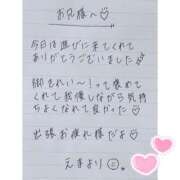 お兄様へ♡
今日は遊びに来てくれて
ありがとうございました
脚きれい〜!って褒めて
くれて我慢しながら気持
ちよくなれて良かった♡
出張お疲れ様だよ♡
えまより